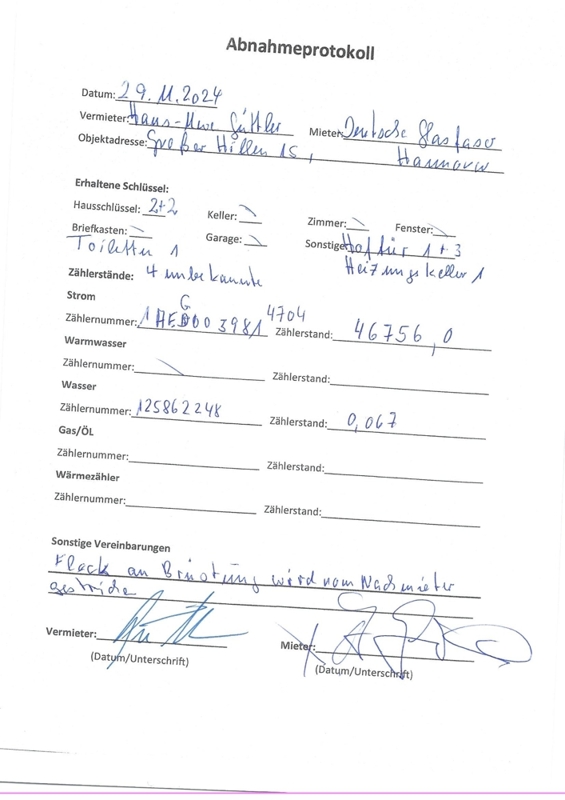 Abnahmeprotokoll
Datum: 29.11.2024
Vermieter: Hans-Uwe Güttler Mieter: Deutsche Glasfaser
Objektadresse: Großer Hillen 15, Hannover
Erhaltene Schlüssel:
Hausschlüssel: 2+2 Keller: Zimmer: Fenster:
Briefkasten: Garage: Sonstige: Hoftür 1+3
Toiletten 1 Heizungskeller 1
Zählerstände: 4 unbekannte
Strom
Zählernummer: Zählerstand: 46756,0
Warmwasser
Zählernummer: Zählerstand:
Wasser
Zählernummer: 125862248 Zählerstand: 0,067
Gas/ÖL
Zählernummer: Zählerstand:
Wärmezähler
Zählernummer: Zählerstand:
Sonstige Vereinbarungen
Fleck an Brüstung wird vom Nachmieter
gestrichen
Vermieter: Mieter:
(Datum/Unterschrift) (Datum/Unterschrift)